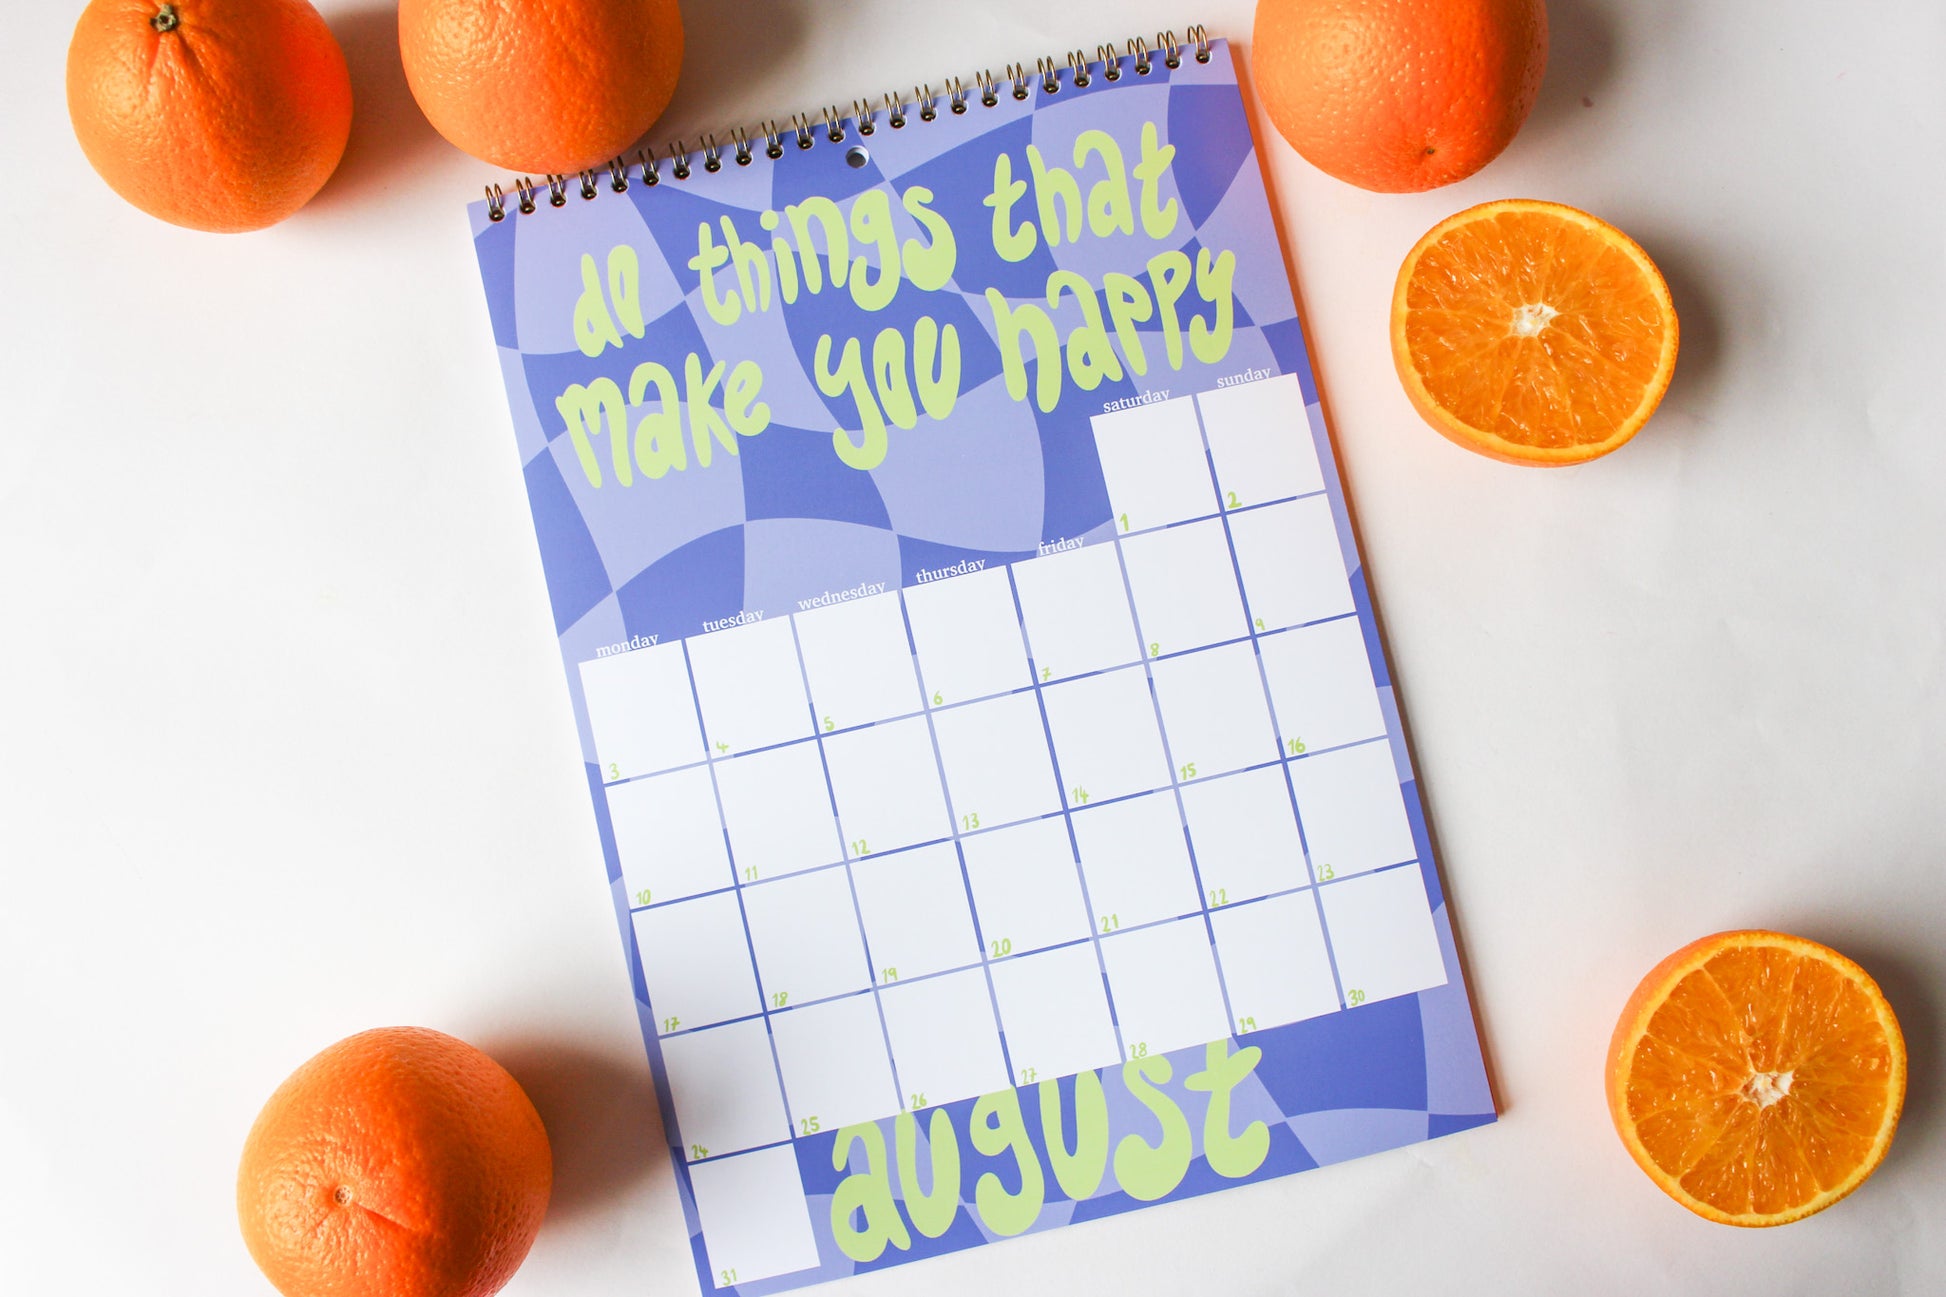 do things that
make you happy
saturday sunday
1 2
monday tuesday wednesday thursday friday
3 4 5 6 7 8 9
10 11 12 13 14 15 16
17 18 19 20 21 22 23
24 25 26 27 28 29 30
31
august